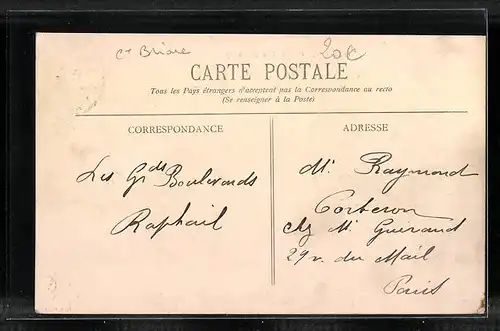 ct Briare
20€
CARTE POSTALE
Tous les Pays étrangers n'acceptent pas la Correspondance au recto
(Se renseigner à la Poste)
CORRESPONDANCE
Les Gds Boulevards
Raphaël
ADRESSE
Mr. Raymond
Corberon
chez Mr Guiraud
29 r. du Mail
Paris